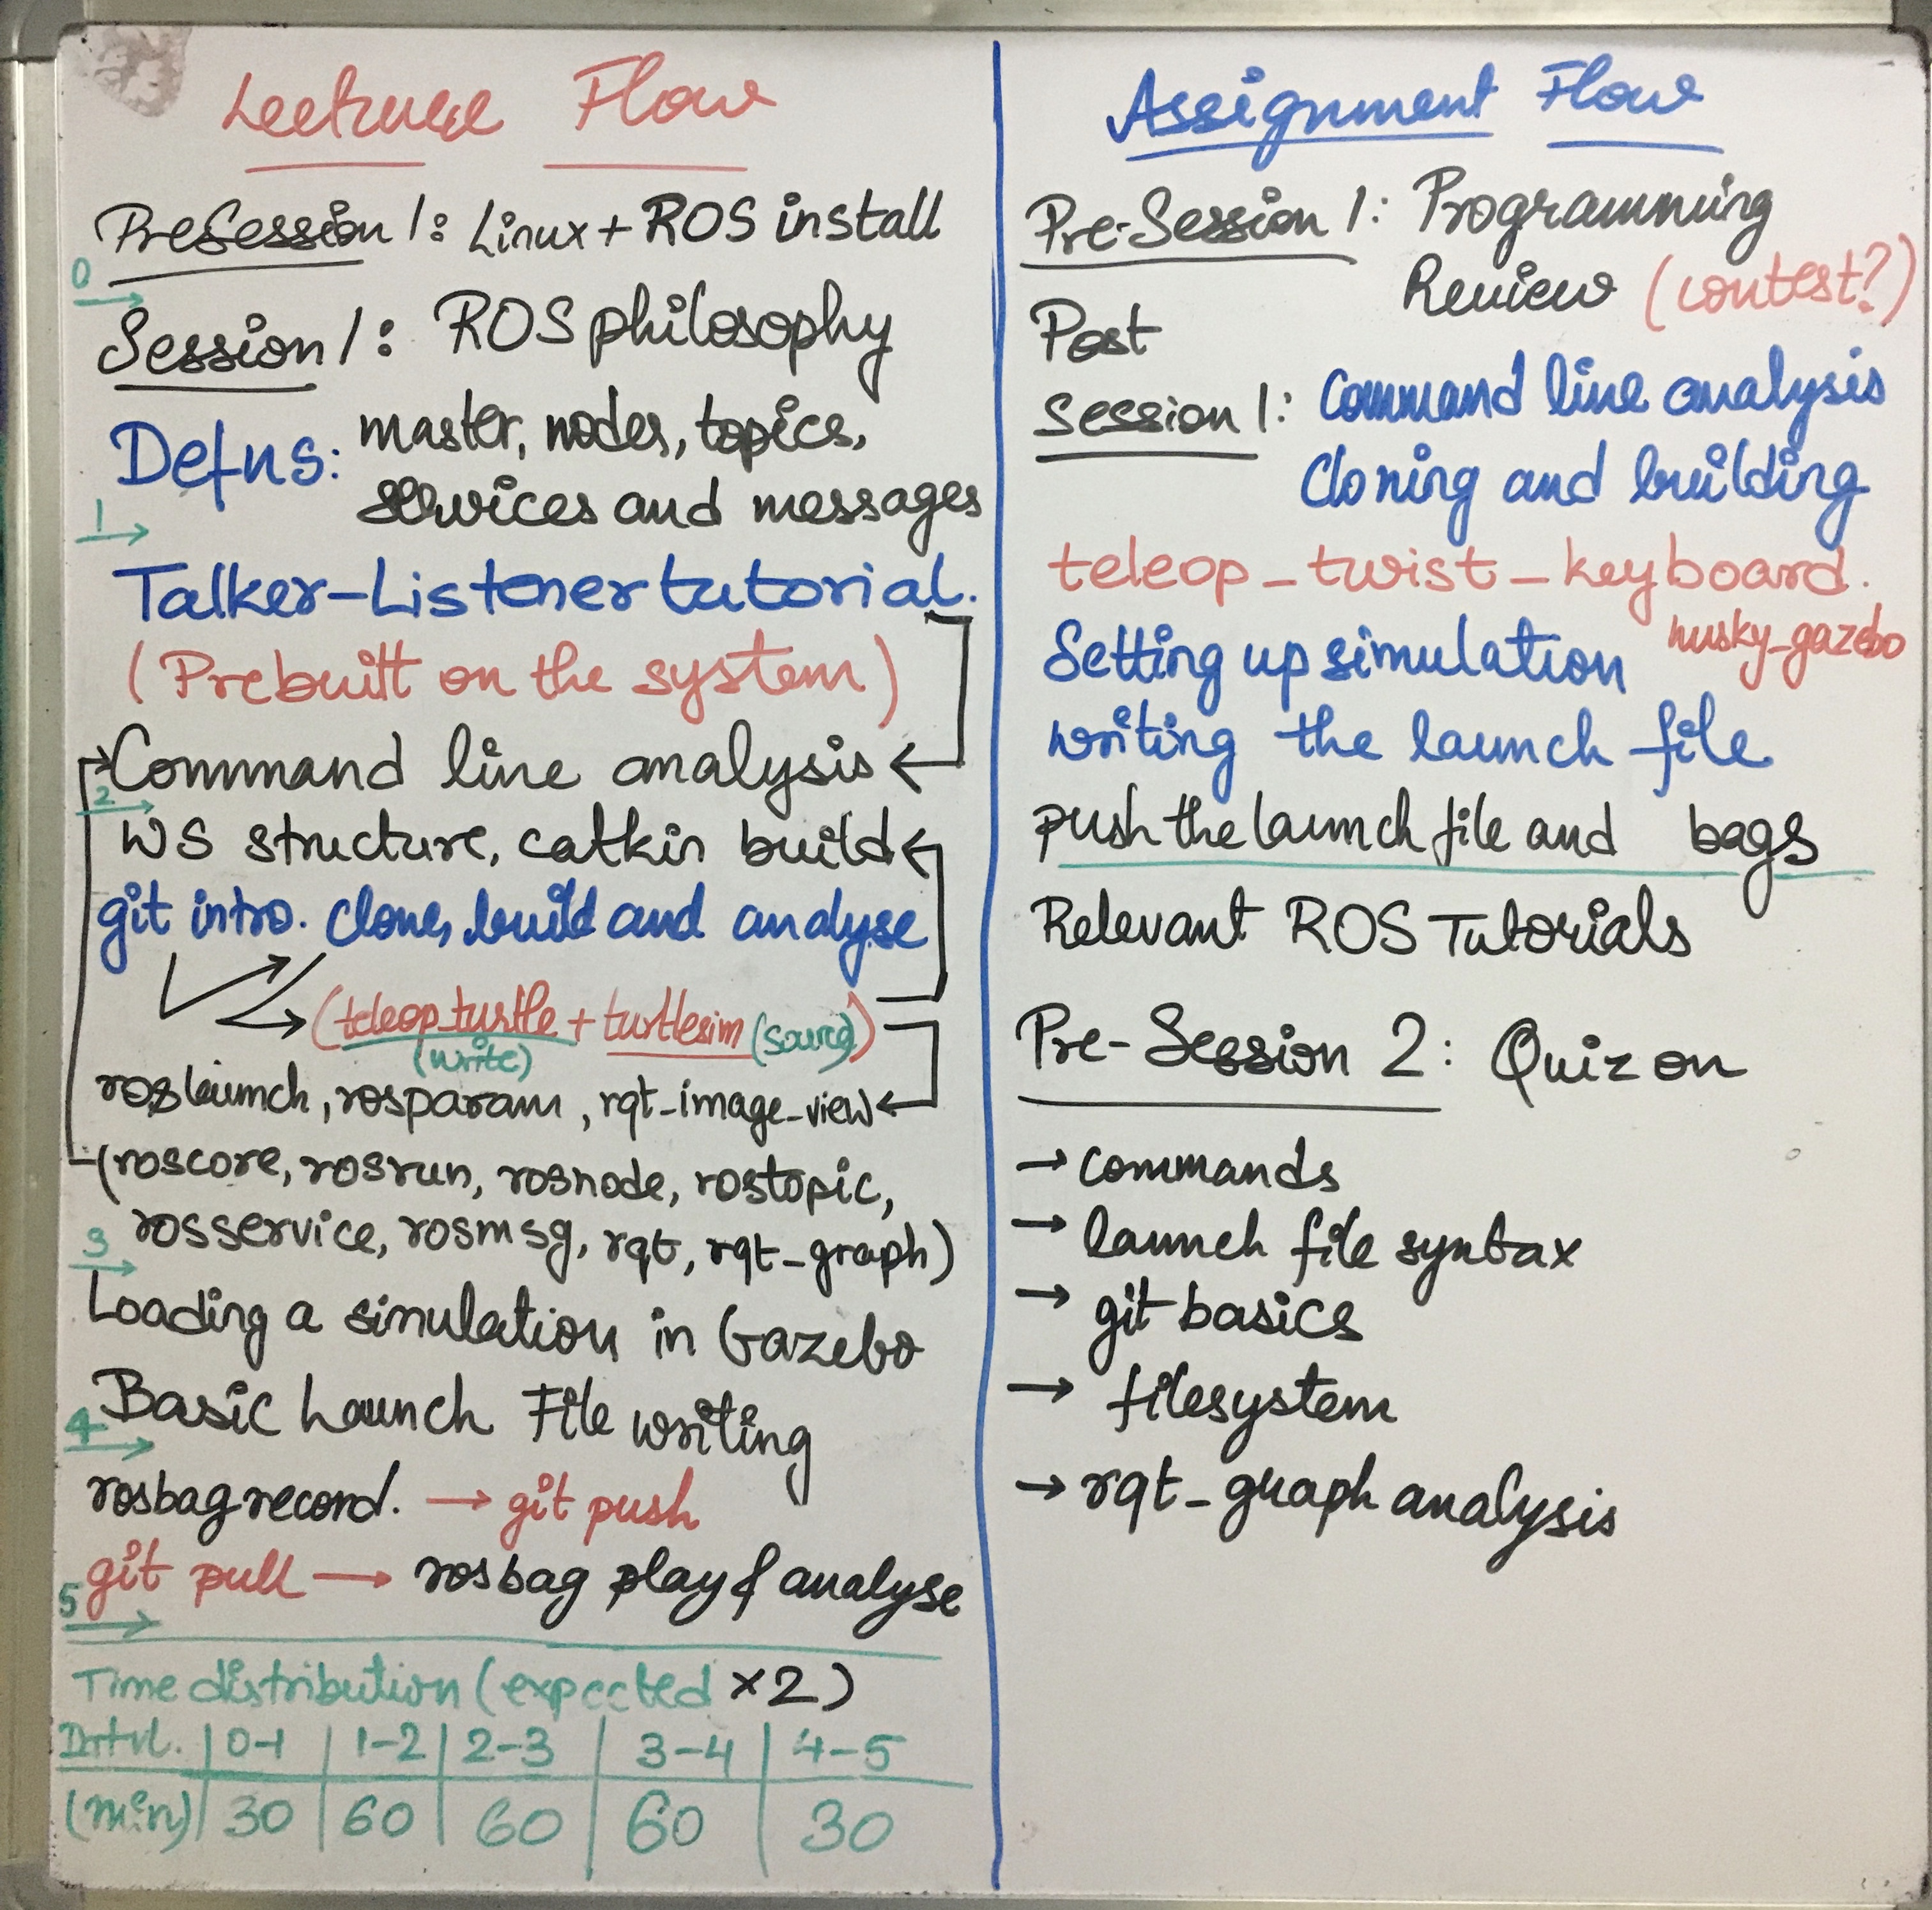 Lecture Flow
PreSession 1: Linux + ROS install
0
Session 1: ROS philosophy
Defns: master, nodes, topics,
services and messages
1
Talker-Listener tutorial.
(Prebuilt on the system)
Command line analysis
2
WS structure, catkin build
git intro. clone, build and analyse
(teleop_turtle + turtlesim (source))
(write)
roslaunch, rosparam, rqt_image_view
(roscore, rosrun, rosnode, rostopic,
rosservice, rosmsg, rqt, rqt_graph)
3
Loading a simulation in Gazebo
Basic Launch File writing
4
rosbag record. → git push
git pull → rosbag play & analyse
5
Time distribution (expected ×2)
Intvl. 0-1 1-2 2-3 3-4 4-5
(min) 30 60 60 60 30
Assignment Flow
Pre-Session 1: Programming
Review (contest?)
Post
Session 1: Command line analysis
Cloning and building
teleop_twist_keyboard.
Setting up simulation husky_gazebo
writing the launch file
push the launch file and bags
Relevant ROS Tutorials
Pre-Session 2: Quiz on
→ commands
→ launch file syntax
→ git basics
→ filesystem
→ rqt_graph analysis